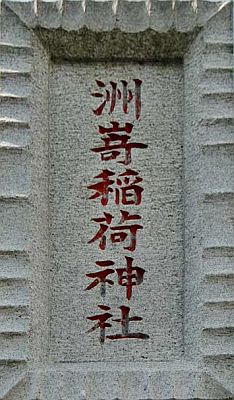 洲嵜稲荷神社